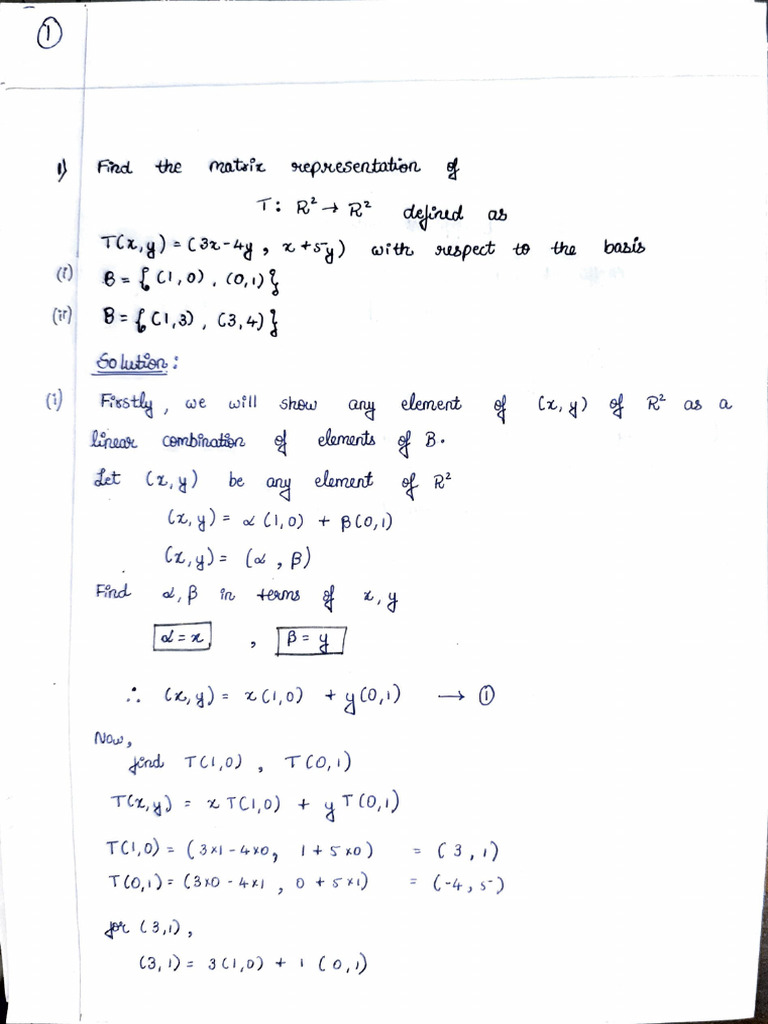 ①
1) Find the matrix representation of
T: R² → R² defined as
T(x,y) = (3x-4y, x+5y) with respect to the basis
(i) B = {(1,0), (0,1)}
(ii) B = {(1,3), (3,4)}
Solution:
(i) Firstly, we will show any element of (x,y) of R² as a
linear combination of elements of B.
Let (x,y) be any element of R²
(x,y) = α(1,0) + β(0,1)
(x,y) = (α, β)
Find α, β in terms of x, y
α = x , β = y
∴ (x,y) = x(1,0) + y(0,1) → ①
Now,
find T(1,0), T(0,1)
T(x,y) = x T(1,0) + y T(0,1)
T(1,0) = (3×1-4×0, 1+5×0) = (3,1)
T(0,1) = (3×0-4×1, 0+5×1) = (-4,5)
for (3,1),
(3,1) = 3(1,0) + 1(0,1)